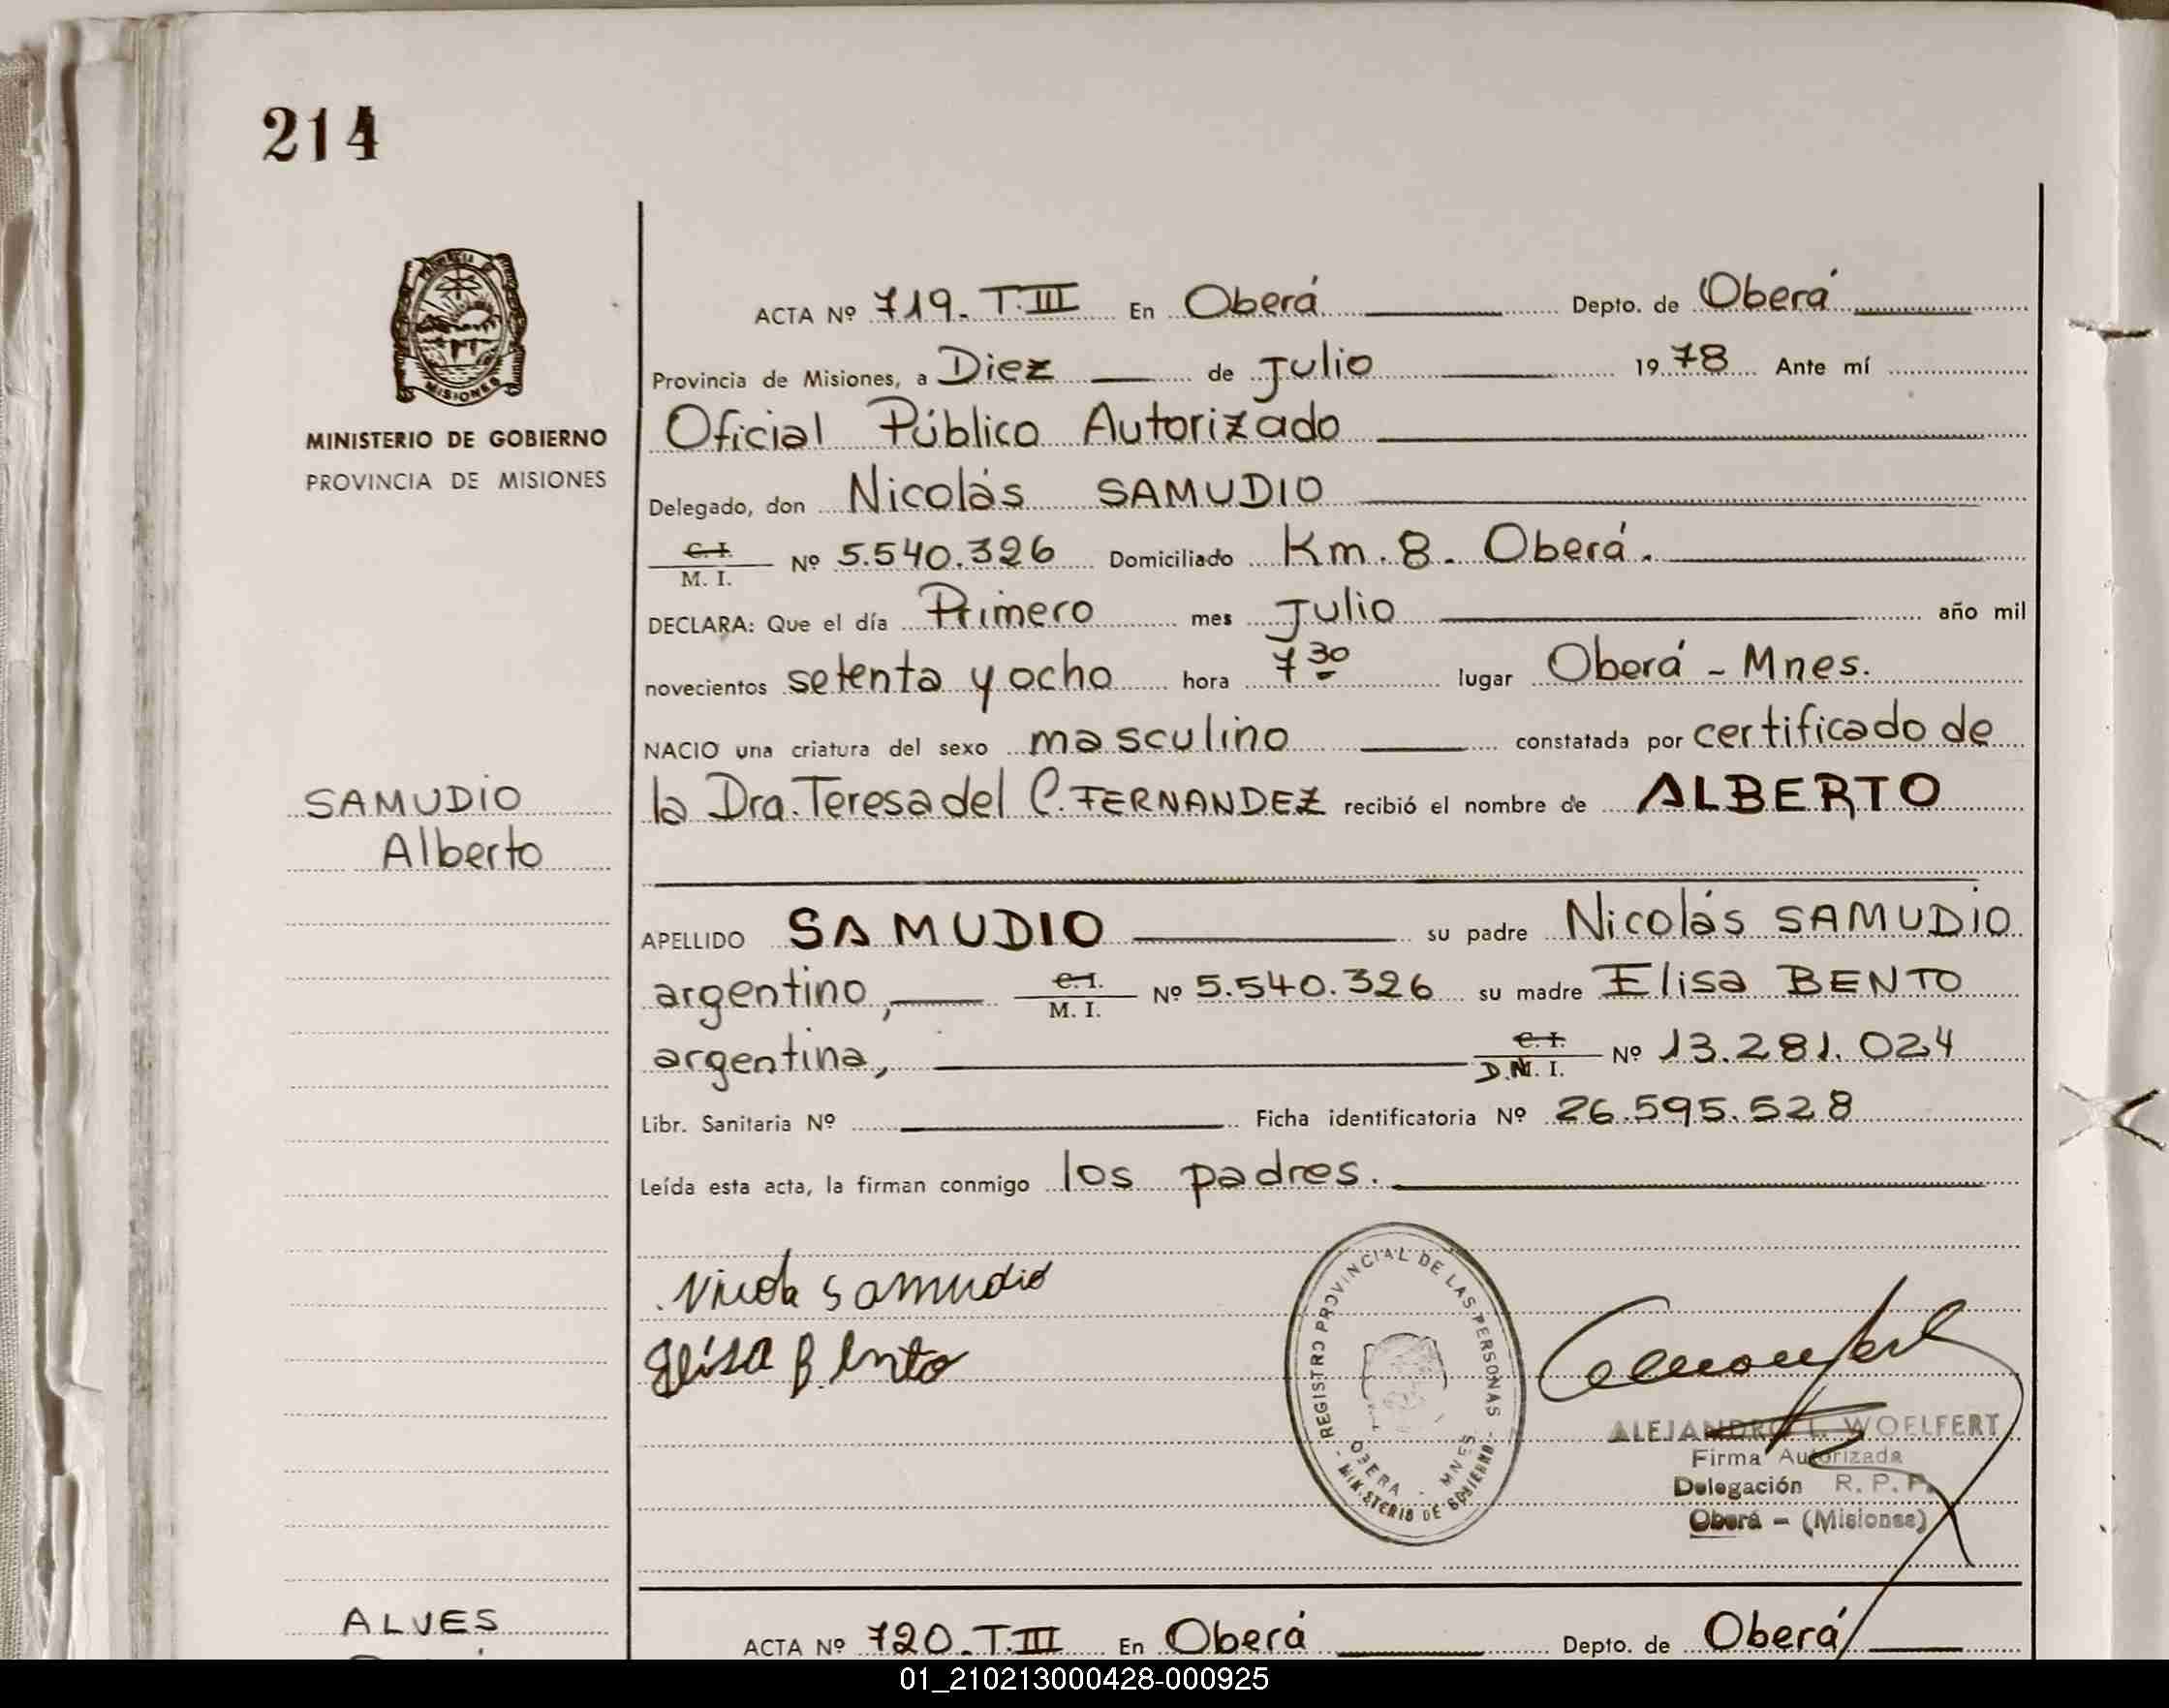 214
PROVINCIA DE
MISIONES
MINISTERIO DE GOBIERNO
PROVINCIA DE MISIONES
ACTA Nº 719. T.III En Oberá Depto. de Oberá
Provincia de Misiones, a Diez de Julio 1978 Ante mí
Oficial Público Autorizado
Delegado, don Nicolás SAMUDIO
C. I.
M. I. Nº 5.540.326 Domiciliado Km. 8. Oberá.
DECLARA: Que el día Primero mes Julio año mil
novecientos setenta y ocho hora 7 30 lugar Oberá - Mnes.
NACIO una criatura del sexo masculino constatada por certificado de
SAMUDIO
Alberto
la Dra. Teresa del C. FERNANDEZ recibió el nombre de ALBERTO
APELLIDO SAMUDIO su padre Nicolás SAMUDIO
argentino, C. I.
M. I. Nº 5.540.326 su madre Elisa BENTO
argentina, C. I.
D.N. I. Nº 13.281.024
Libr. Sanitaria Nº Ficha identificatoria Nº 26.595.528
Leída esta acta, la firman conmigo los padres.
Nicola Samudio
Elísa Bento
- REGISTRO PROVINCIAL DE LAS PERSONAS -
OBERA - MNES
MINISTERIO DE GOBIERNO
ALEJANDRO L. WOELFERT
Firma Autorizada
Delegación R. P. P.
Oberá - (Misiones)
ALVES
ACTA Nº 720. T.III En Oberá Depto. de Oberá
01_210213000428-000925